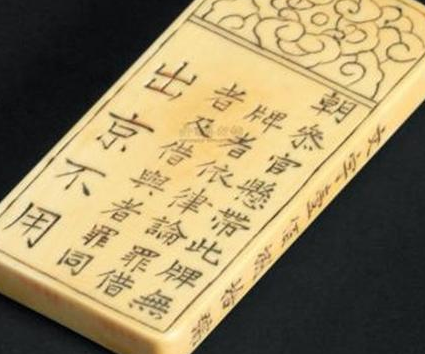 朝叅官懸帶此牌無
牌者依律論罪借
者及借與者罪同
出京不用
文字壹
號